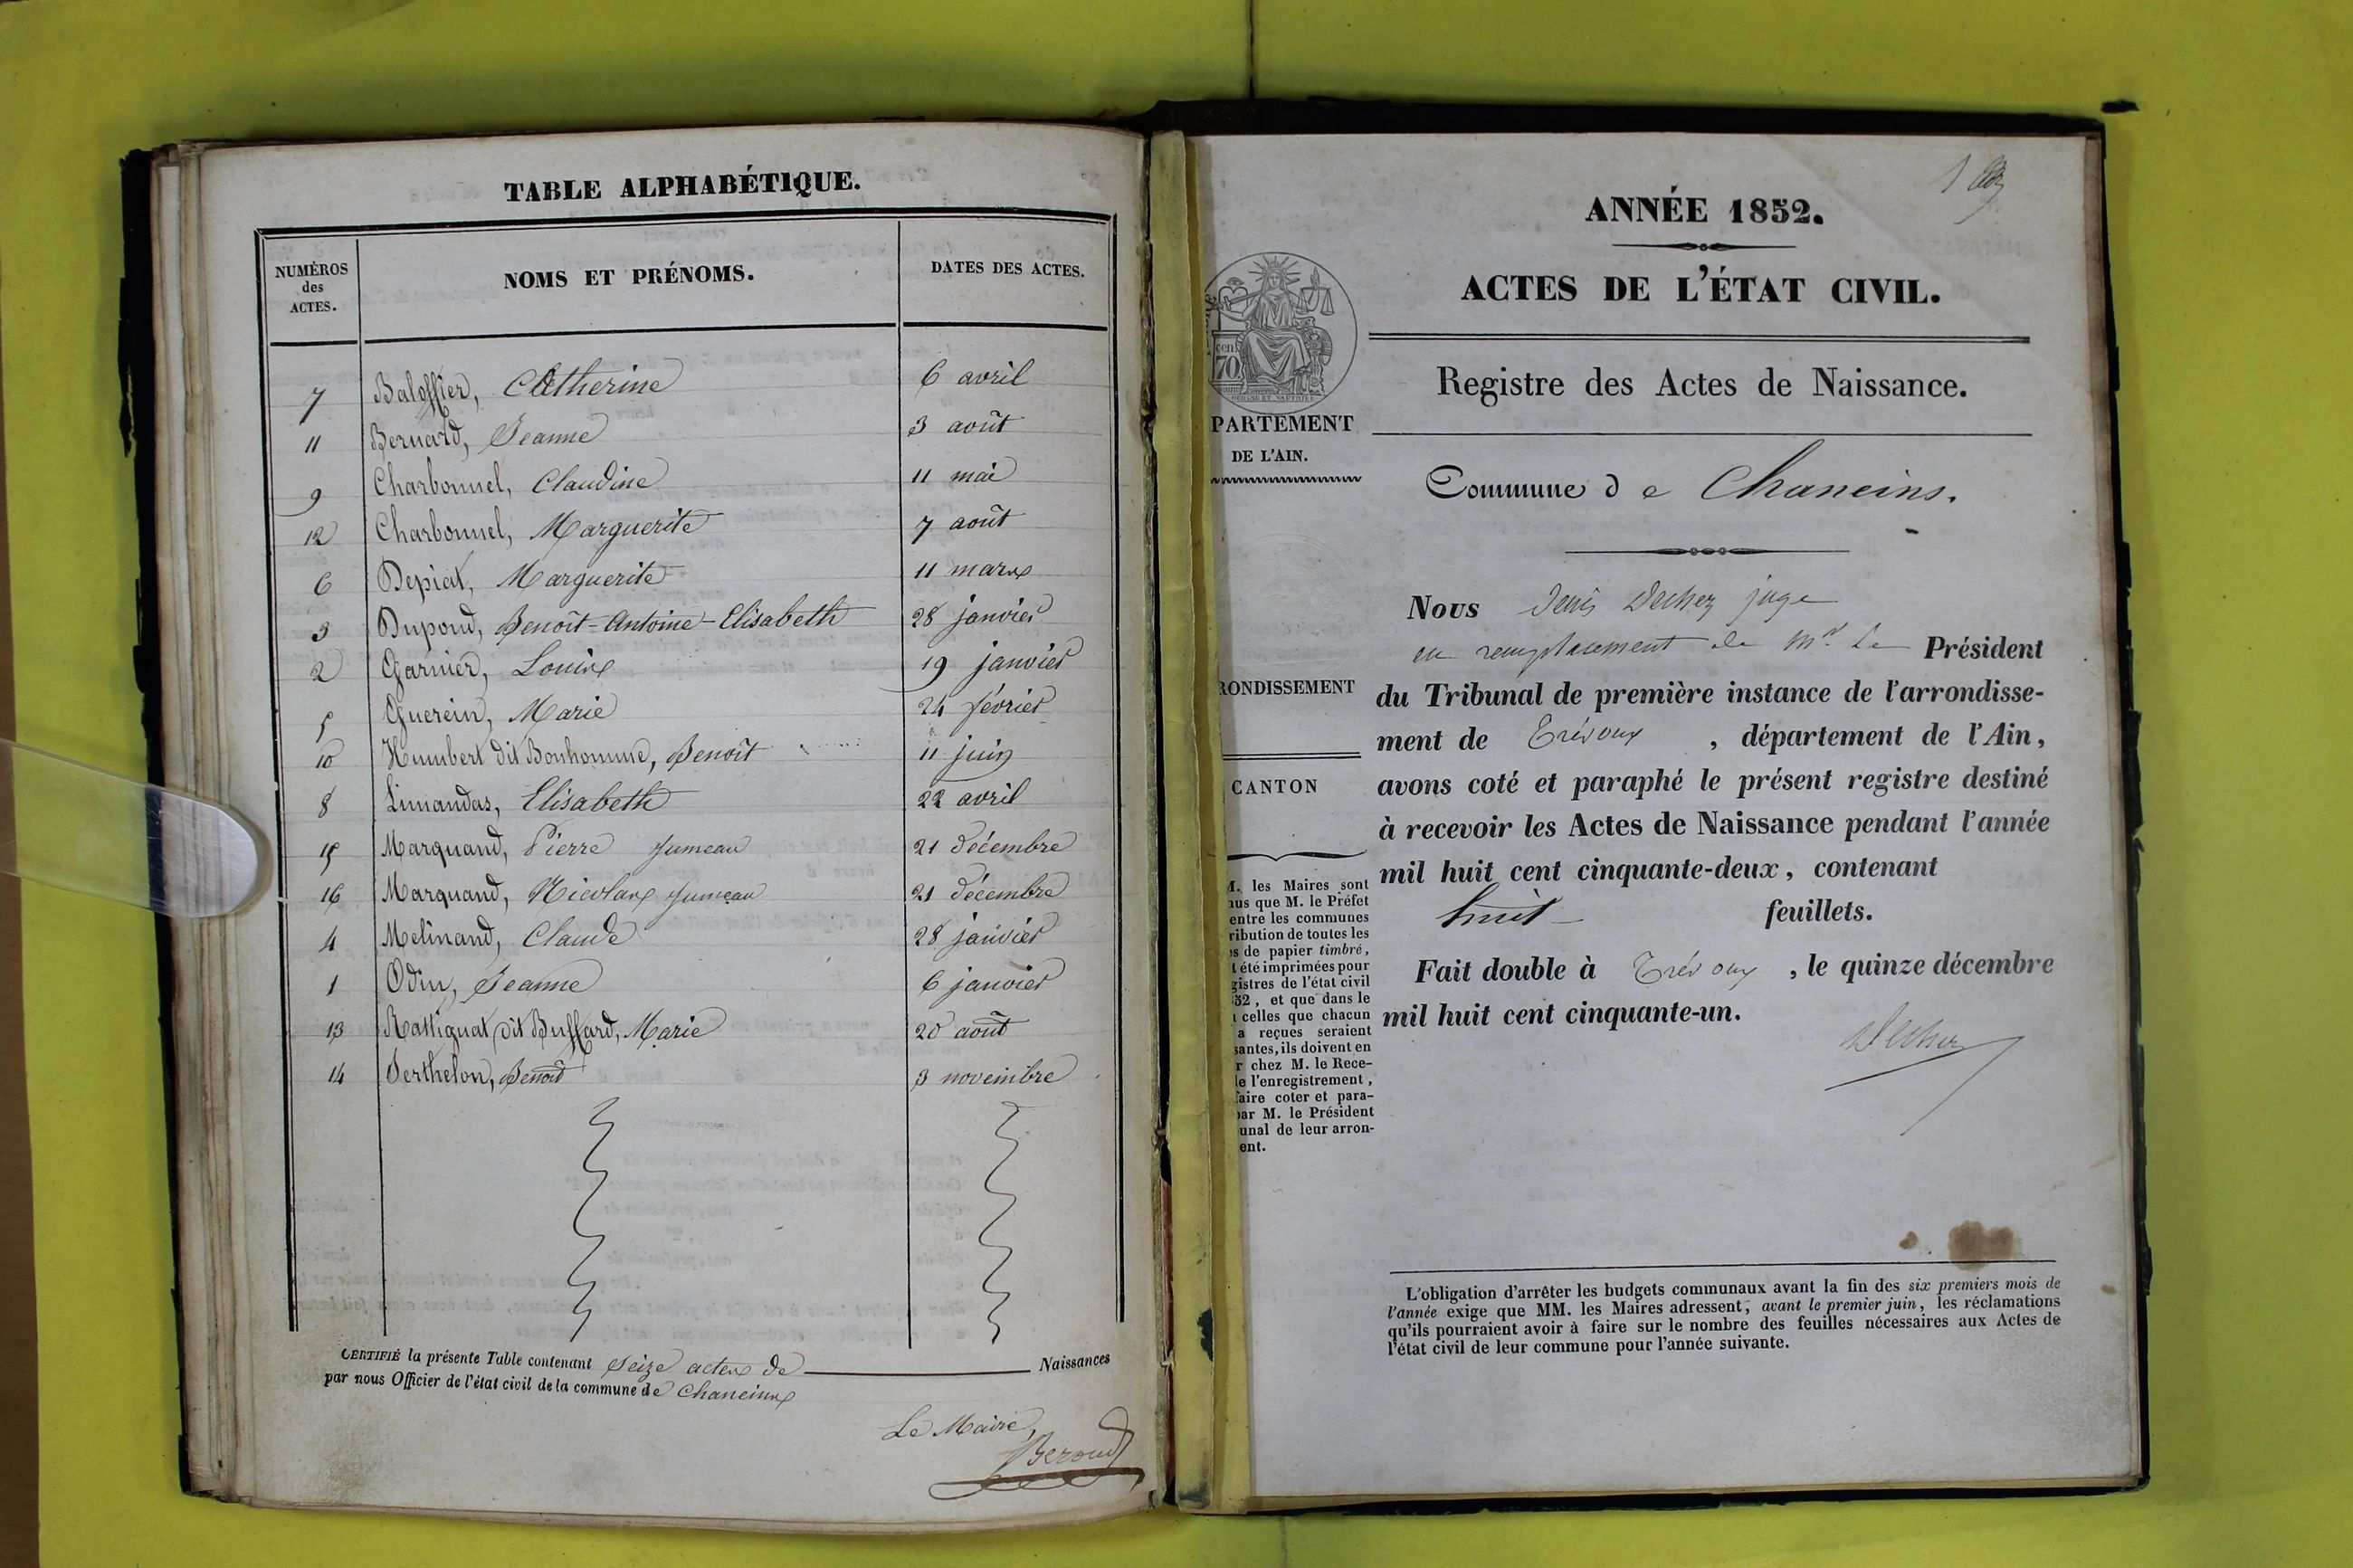 TABLE ALPHABÉTIQUE.
NUMÉROS
des
ACTES.
NOMS ET PRÉNOMS.
DATES DES ACTES.
7 Baloffier, Catherine 6 avril
11 Bernard, Jeanne 3 août
9 Charbonnel, Claudine 11 mai
12 Charbonnel, Marguerite 7 août
6 Depiat, Marguerite 11 mars
3 Dupond, Benoît-Antoine-Elisabeth 28 janvier
2 Garnier, Louise 19 janvier
5 Guerein, Marie 24 février
10 Humbert dit Bonhomme, Benoît 11 juin
8 Limandas, Elisabeth 22 avril
15 Marquand, Pierre Jumeau 21 décembre
16 Marquand, Nicolas Jumeau 21 décembre
4 Melinand, Claude 28 janvier
1 Odin, Jeanne 6 janvier
13 Rattignat dit Buffard, Marie 20 août
14 Berthelon, Benoît 3 novembre
CERTIFIÉ la présente Table contenant seize actes de Naissances
par nous Officier de l'état civil de la commune de Chaneins
Le Maire,
Beroud
1
ANNÉE 1852.
ACTES DE L'ÉTAT CIVIL.
Registre des Actes de Naissance.
cen
70
PARTEMENT
DE L'AIN.
Commune de Chaneins.
Nous Denis Decher juge
en remplacement de Mr. le Président
du Tribunal de première instance de l'arrondisse-
ment de Trévoux, département de l'Ain,
avons coté et paraphé le présent registre destiné
à recevoir les Actes de Naissance pendant l'année
mil huit cent cinquante-deux, contenant
huit feuillets.
Fait double à Trévoux, le quinze décembre
mil huit cent cinquante-un.
Decher
RONDISSEMENT
CANTON
M. les Maires sont
nus que M. le Préfet
entre les communes
ribution de toutes les
s de papier timbré,
t été imprimées pour
gistres de l'état civil
52, et que dans le
celles que chacun
a reçues seraient
santes, ils doivent en
r chez M. le Rece-
le l'enregistrement,
faire coter et para-
par M. le Président
unal de leur arron-
ent.
L'obligation d'arrêter les budgets communaux avant la fin des six premiers mois de
l'année exige que MM. les Maires adressent, avant le premier juin, les réclamations
qu'ils pourraient avoir à faire sur le nombre des feuilles nécessaires aux Actes de
l'état civil de leur commune pour l'année suivante.